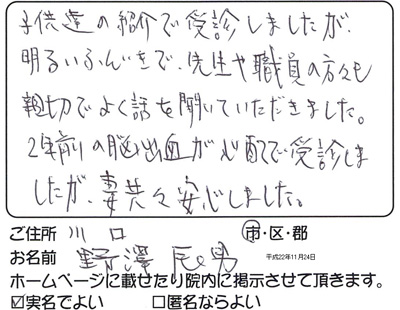 子供達の紹介で受診しましたが、
明るいふんいきで、先生や職員の方々も
親切でよく話を聞いていただきました。
2年前の脳出血が心配で受診しま
したが、妻共々安心しました。
ご住所 川口 市・区・郡
お名前 野澤 辰男 平成22年11月24日
ホームページに載せたり院内に掲示させて頂きます。
☑実名でよい □匿名ならよい